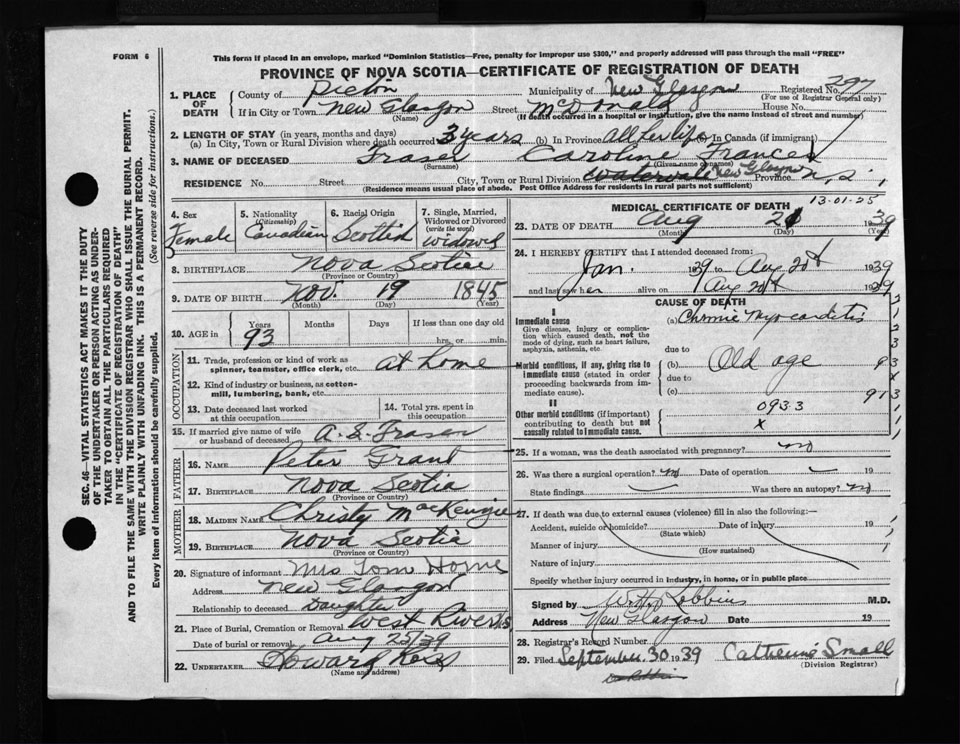 FORM 6
This form if placed in an envelope, marked "Dominion Statistics—Free, penalty for improper use $300," and properly addressed will pass through the mail "FREE"
PROVINCE OF NOVA SCOTIA—CERTIFICATE OF REGISTRATION OF DEATH
1. PLACE OF DEATH County of Pictou Municipality of New Glasgow Registered No. 297
(For use of Registrar General only)
If in City or Town New Glasgow Street McDonald House No.
(Name) (If death occurred in a hospital or institution, give the name instead of street and number)
2. LENGTH OF STAY (in years, months and days)
(a) In City, Town or Rural Division where death occurred 3 years (b) In Province All her life In Canada (if immigrant)
3. NAME OF DECEASED Fraser Caroline Frances
(Surname) (Given name or names)
RESIDENCE No. Street City, Town or Rural Division New Glasgow Province N.S.
(Residence means usual place of abode. Post Office Address for residents in rural parts not sufficient)
13-01-25
4. Sex Female
5. Nationality (Citizenship) Canadian
6. Racial Origin Scottish
7. Single, Married, Widowed or Divorced (write the word) Widowed
8. BIRTHPLACE Nova Scotia
(Province or Country)
9. DATE OF BIRTH Nov. 19 1845
(Month) (Day) (Year)
10. AGE in Years 93 Months Days If less than one day old hrs. or min.
OCCUPATION
11. Trade, profession or kind of work as spinner, teamster, office clerk, etc. at home
12. Kind of industry or business, as cotton-mill, lumbering, bank, etc.
13. Date deceased last worked at this occupation
14. Total yrs. spent in this occupation
15. If married give name of wife or husband of deceased A. S. Fraser
FATHER
16. NAME Peter Grant
17. BIRTHPLACE Nova Scotia
(Province or Country)
MOTHER
18. MAIDEN NAME Christy MacKenzie
19. BIRTHPLACE Nova Scotia
(Province or Country)
20. Signature of informant Mrs Tom Horne
Address New Glasgow
Relationship to deceased Daughter
21. Place of Burial, Cremation or Removal West River
Date of burial or removal Aug 23/39
22. UNDERTAKER Howard
(Name and address)
MEDICAL CERTIFICATE OF DEATH
23. DATE OF DEATH Aug 21 1939
(Month) (Day) (Year)
24. I HEREBY CERTIFY that I attended deceased from:
Jan. 1939 to Aug 20th 1939
and last saw her alive on Aug 20th 1939
CAUSE OF DEATH
I
Immediate cause
Give disease, injury or complication which caused death, not the mode of dying, such as heart failure, asphyxia, asthenia, etc
(a) Chronic Myocarditis
due to
Morbid conditions, if any, giving rise to immediate cause (stated in order proceeding backwards from immediate cause).
(b) Old age
due to
(c)
II
Other morbid conditions (if important) contributing to death but not causally related to immediate cause.
0933
x
25. If a woman, was the death associated with pregnancy? no
26. Was there a surgical operation? no Date of operation 19
State findings Was there an autopsy? no
27. If death was due to external causes (violence) fill in also the following:—
Accident, suicide or homicide? Date of injury 19
(State which)
Manner of injury
(How sustained)
Nature of injury
Specify whether injury occurred in industry, in home, or in public place
Signed by M.D.
Address New Glasgow Date 19
28. Registrar's Record Number
29. Filed September 30 1939 Catherine Small
(Division Registrar)
SEC. 46—VITAL STATISTICS ACT MAKES IT THE DUTY
OF THE UNDERTAKER OR PERSON ACTING AS UNDER-
TAKER TO OBTAIN ALL THE PARTICULARS REQUIRED
IN THE "CERTIFICATE OF REGISTRATION OF DEATH"
AND TO FILE THE SAME WITH THE DIVISION REGISTRAR WHO SHALL ISSUE THE BURIAL PERMIT.
WRITE PLAINLY WITH UNFADING INK. THIS IS A PERMANENT RECORD.
Every Item of Information should be carefully supplied. (See reverse side for instructions.)